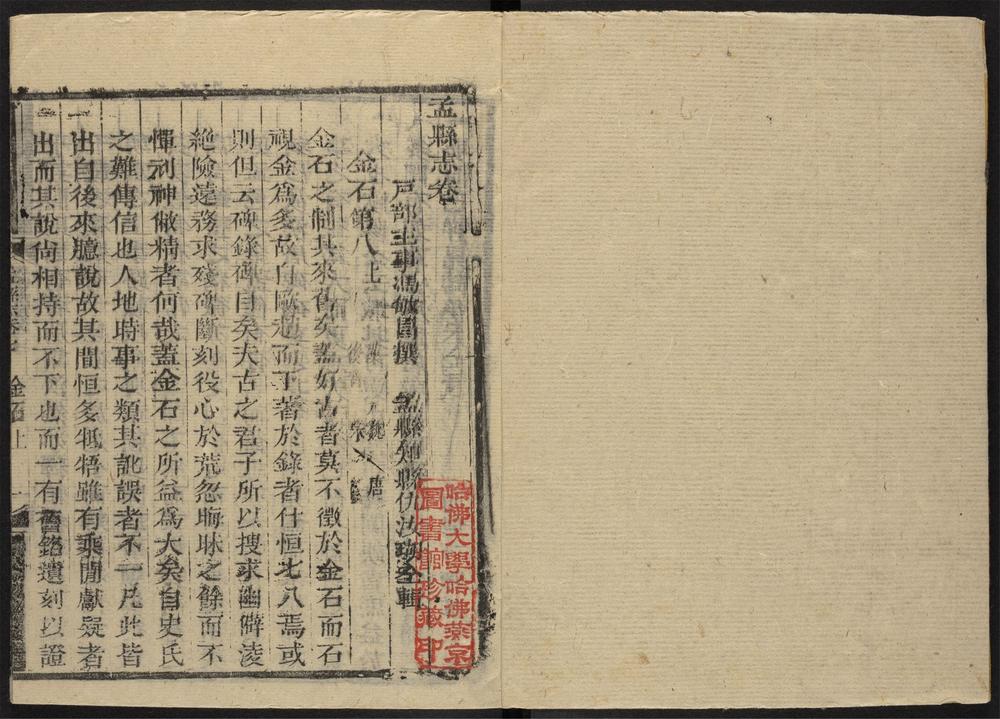 孟縣志卷
戶部主事馮敏昌撰 孟縣知縣仇汝瑚全輯
金石第八上 魏 周 後 宋
金石之制其來舊矣蓋好古者莫不徵於金石而石
視金爲多故自歐趙而下著於錄者什恒七八焉或
則但云碑錄碑目矣夫古之君子所以搜求幽僻淩
絶險遠務求殘碑斷刻役心於荒忽晦昧之餘而不
憚刓神僘精者何哉蓋金石之所益爲大矣自史氏
之難傳信也人地時事之類其訛誤者不一凡此皆
出自後來臆說故其間恒多牴牾雖有乘聞獻疑者
出而其說尚相持而不下也而一有舊銘遺刻以證
金石上
哈佛大學哈佛燕京
圖書館珍藏印